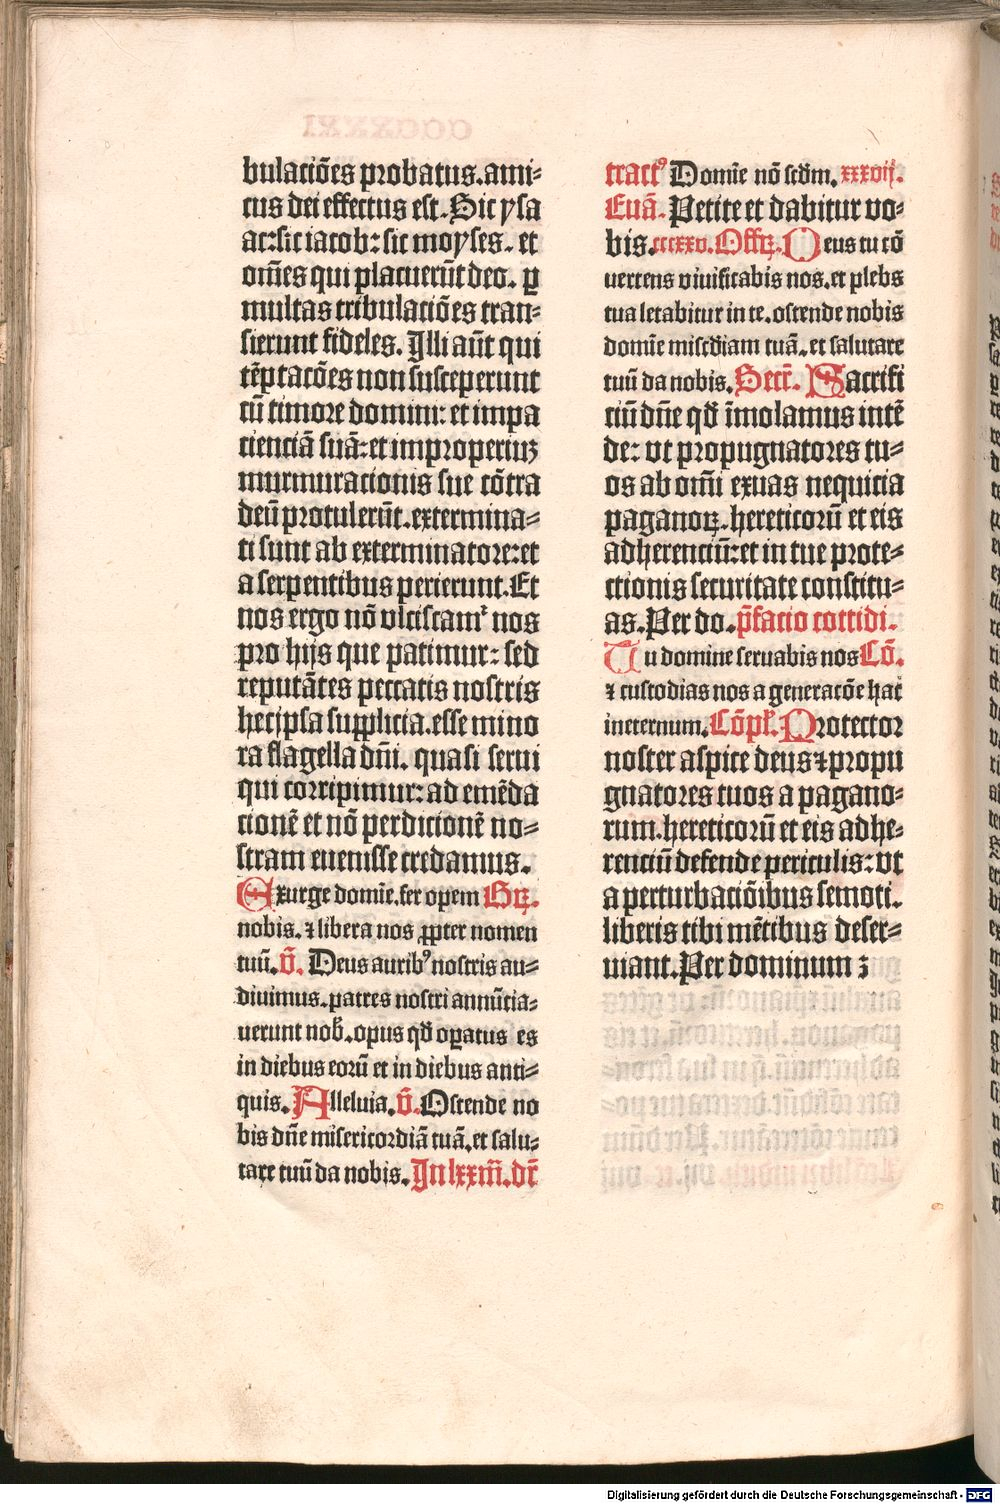 bulaciões probatus. ami⸗
cus dei effectus est. Sic ysa
ac: sic iacob: sic moyses. et
om̄es qui placuerūt deo. ꝑ
multas tribulaciões tran⸗
sierunt fideles. Illi aūt qui
tēptacōes non susceperunt
cū timore domini: et impa
cienciā suā: et improperiuꝫ
murmuracionis sue cōtra
deū protulerūt. extermina⸗
ti sunt ab exterminatore: et
a serpentibus perierunt. Et
nos ergo nō vlciscamʳ nos
pro hijs que patimur: sed
reputātes peccatis nostris
hec ipsa supplicia. esse mino
ra flagella dn̄i. quasi serui
qui corripimur: ad emēda
cionē et nō perdicionē no⸗
stram euenisse credamus.
Exurge domīe. fer opem Gꝝ.
nobis. ⁊ libera nos ꝓpter nomen
tuū. v̄. Deus auribꝰ nostris au⸗
diuimus. patres nostri annūcia⸗
uerunt nob̄. opus qd̄ oꝑatus es
in diebus eorū et in diebus anti⸗
quis. Alleluia. v̄. Ostende no
bis dn̄e misericordiā tuā. et salu⸗
tare tuū da nobis. In lxxiii. dr̄
tractꝰ Domīe nō scd̄m. xxxvij.
Euā. Petite et dabitur vo⸗
bis. ccccxxv. Offꝝ. Deus tu cō
uertens viuificabis nos. et plebs
tua letabitur in te. ostende nobis
domīe misc̄diam tuā. et salutare
tuū da nobis. Secr̄. Sacrifi
ciū dn̄e qd̄ īmolamus intē
de: vt propugnatores tu⸗
os ab om̄i exuas nequicia
paganoꝝ. hereticorū et eis
adherenciū: et in tue prote⸗
ctionis securitate constitu⸗
as. Per do. p̄facio cottidi.
Tu domine seruabis nos Cō.
⁊ custodias nos a generacōe hac
ineternum. Cōpl̄. Protector
noster aspice deus ⁊ propu
gnatores tuos a pagano⸗
rum. hereticorū et eis adhe⸗
renciū defende periculis: vt
a perturbaciōibus semoti.
liberis tibi mētibus deser⸗
uiant. Per dominum ꝫ
Digitalisierung gefördert durch die Deutsche Forschungsgemeinschaft - DFG